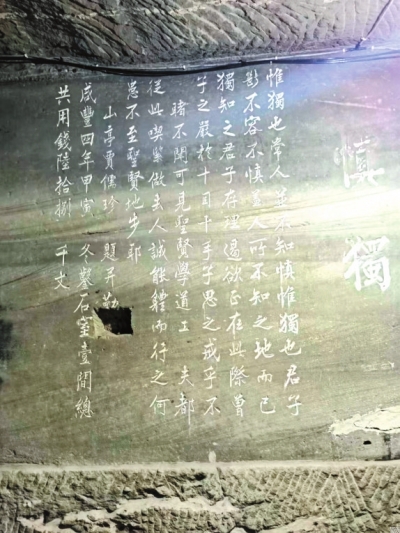 慎獨
惟獨也常人並不知慎惟獨也君子
斷不容不慎蓋人所不知之地而己
獨知之君子存理遏欲正在此際曾
子之嚴於十目十手子思之戒乎不
睹不聞可見聖賢學道工夫都
從此喫緊做去人誠能體而行之何
患不至聖賢地步耶
山亭賈儒珍 題并勒
咸豐四年甲寅 冬鑿石室壹間總
共用錢陸拾捌 千文